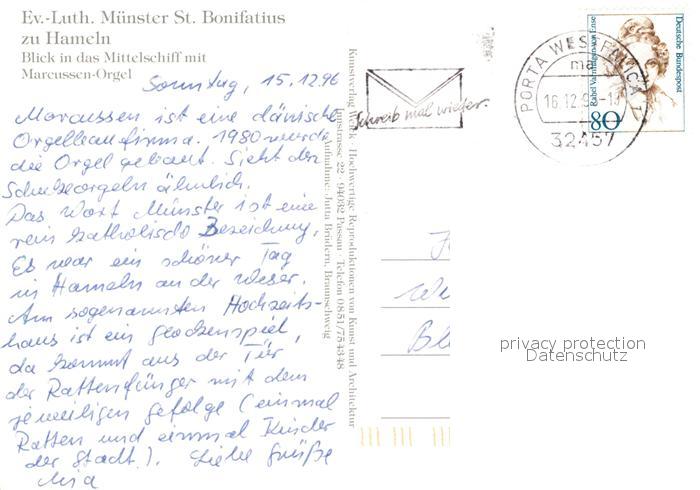 Ev.-Luth. Münster St. Bonifatius
zu Hameln
Blick in das Mittelschiff mit
Marcussen-Orgel
Sonntag, 15.12.96
Marcussen ist eine dänische
Orgelbaufirma. 1980 wurde
die Orgel gebaut. Sieht den
Schukeorgeln ähnlich.
Das Wort Münster ist eine
rein katholische Bezeichnung.
Es war ein schöner Tag
in Hameln an der Weser.
Am sogenannten Hochzeits-
haus ist ein Glockenspiel,
da kommt aus der Tür
der Rattenfänger mit dem
jeweiligen Gefolge (einmal
Ratten und einmal Kinder
der Stadt.). Liebe Grüße
Hochwertige Reproduktionen von Kunst und Architektur
22 · 94032 Passau · Telefon 0851/754348
Aufnahme: Jutta Brüdern, Braunschweig
Schreib mal wieder.
PORTA WESTFALICA 1
ma
16.12.9
32457
Deutsche Bundespost
80
We
Bl
privacy protection
Datenschutz